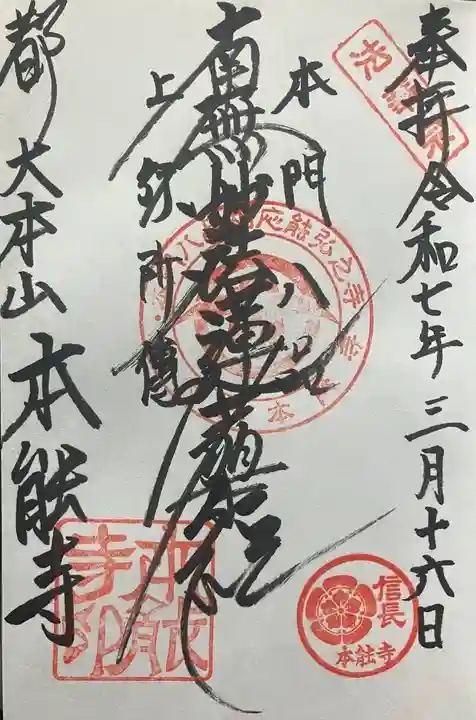 奉拝 令和七年三月十六日
本門八品
南無妙法蓮華経
上行所傳
都 大本山 本能寺
本能寺印
信長
本能寺